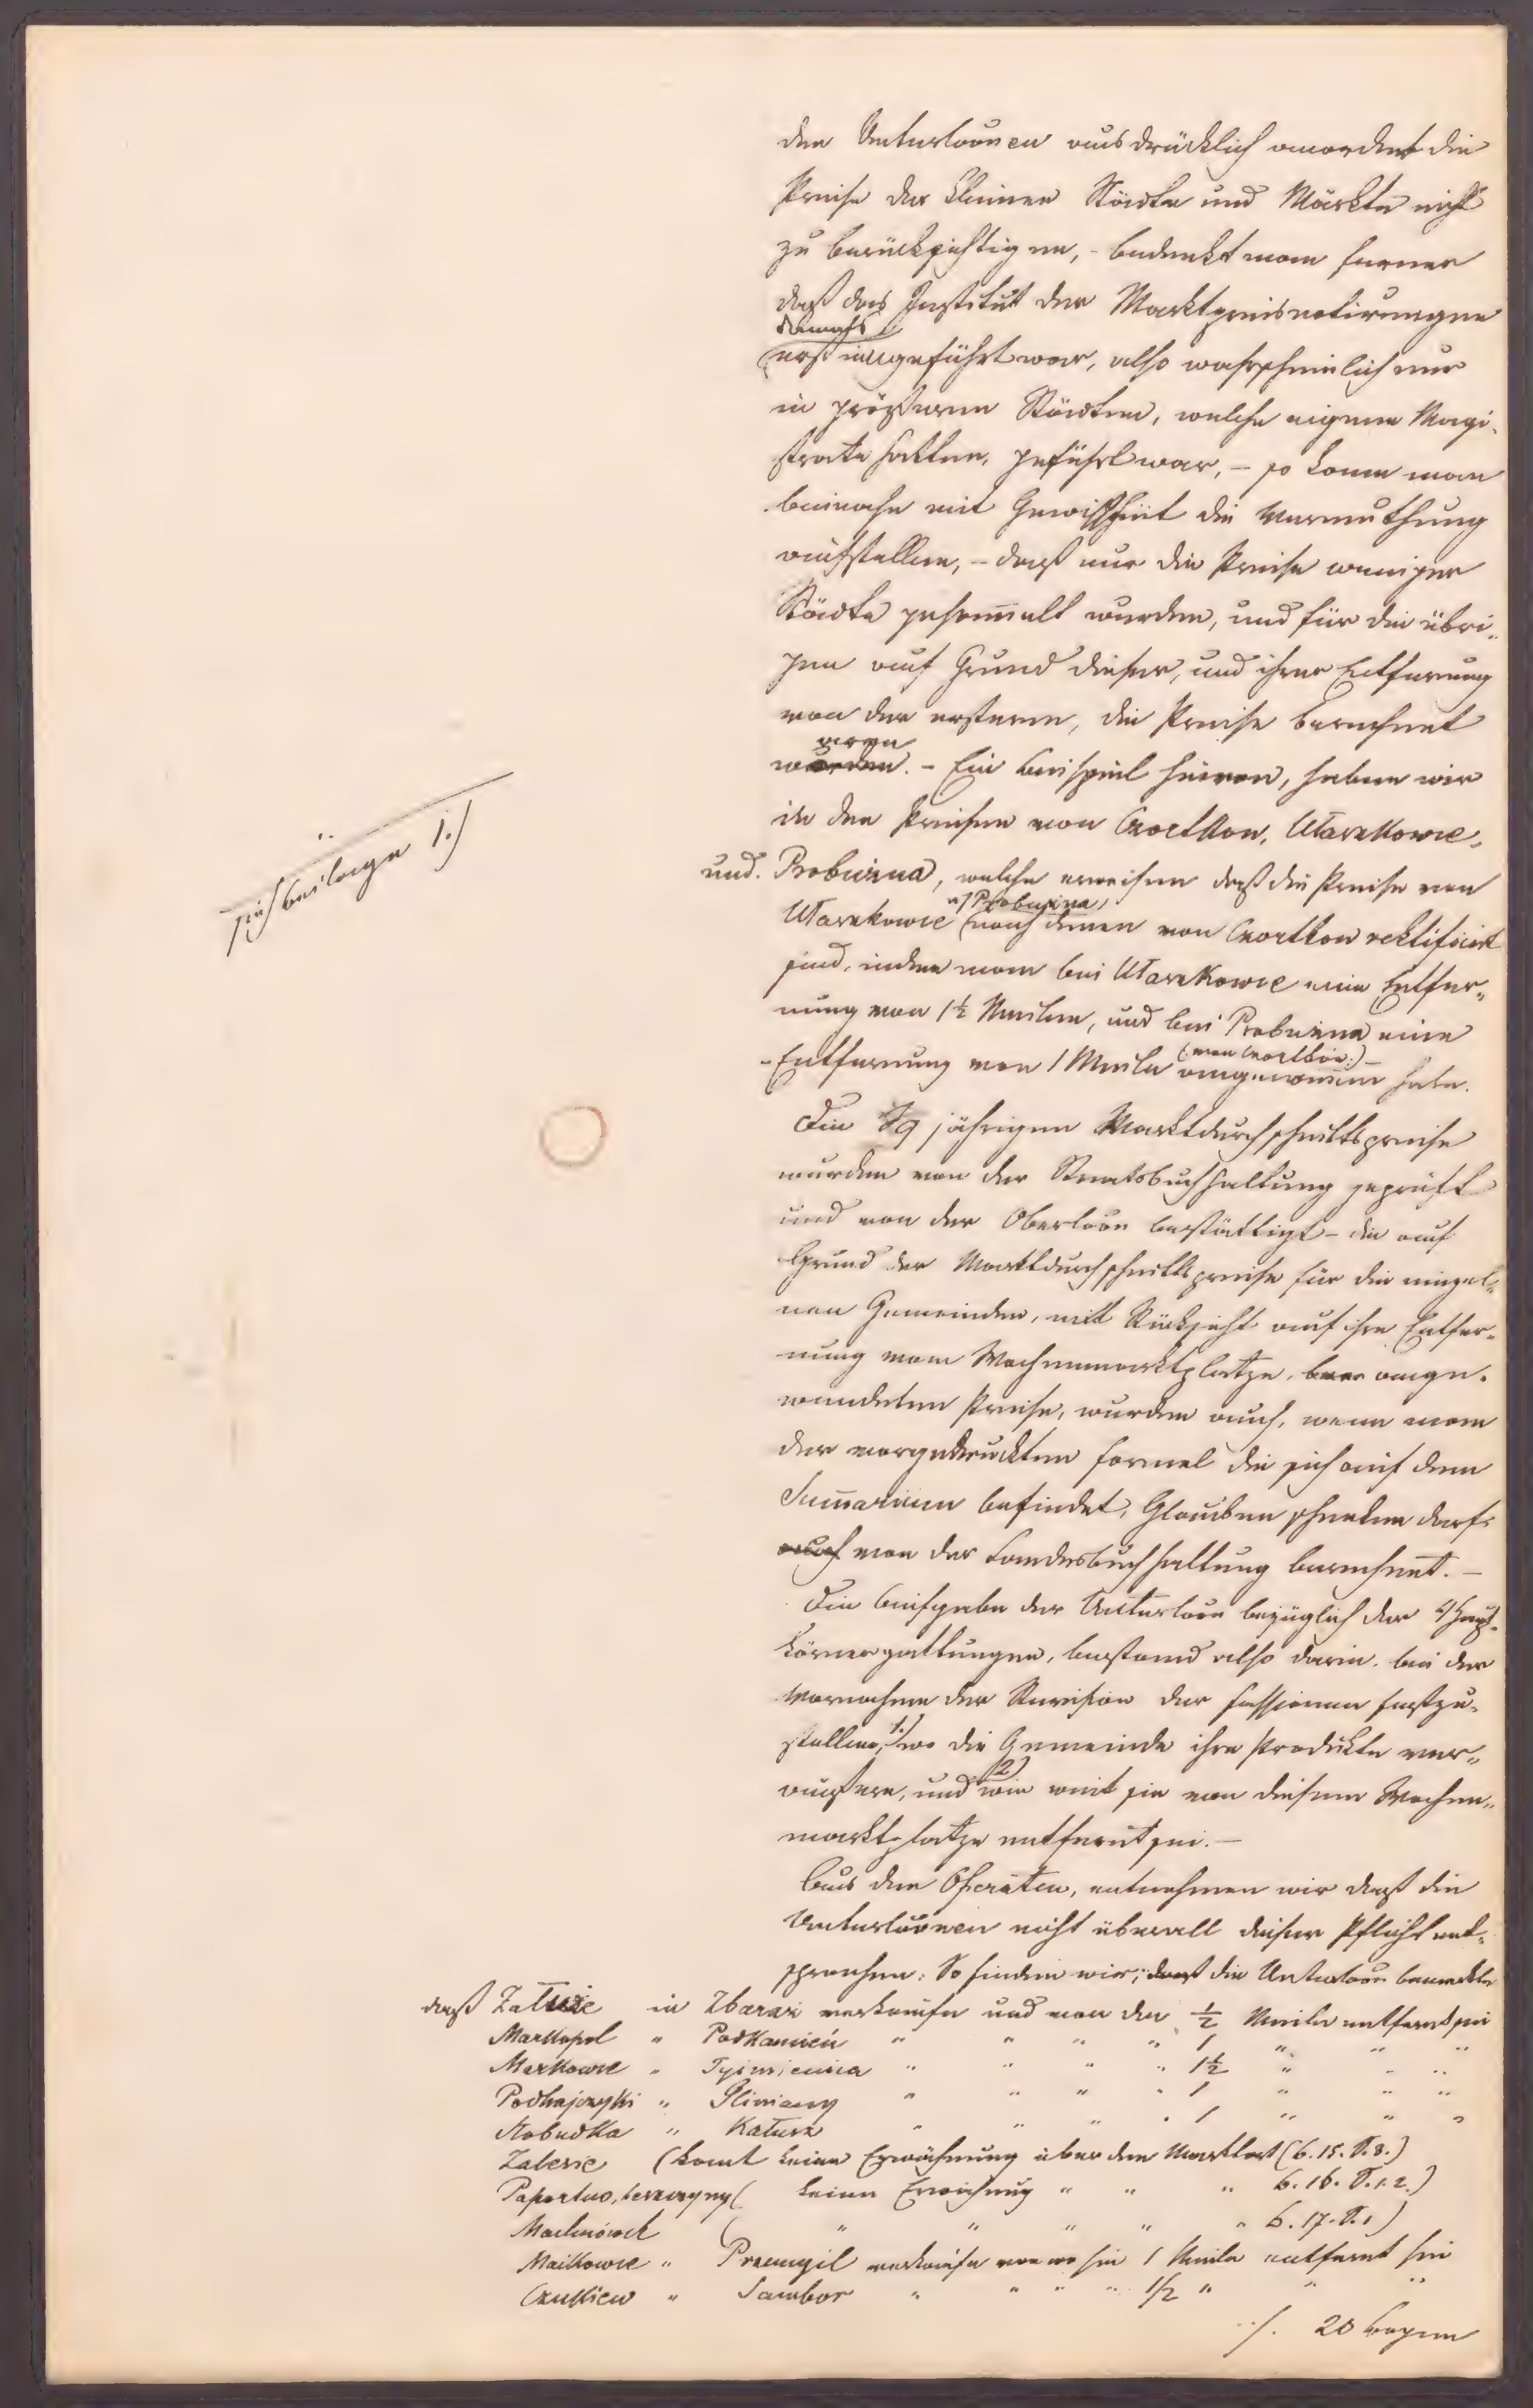 den Unterloonen ausdrücklich anordnet die
Preise der kleinen Städte und Märkte nicht
zu berücksichtigen, - bedenkt man ferner
daß das Institut der Marktpreisnotirungen
damals
erst eingeführt war, also wahrscheinlich nur
in größeren Städten, welche eigene Magi-
strate hatten, geführt war, - so kann man
beinahe mit Gewißheit die Vermuthung
aufstellen, - daß nur die Preise weniger
Städte gesammelt wurden, und für die übri-
gen auf Grund dieser, und ihrer Entfernung
von den ersteren, die Preise berechnet
waren
wurden. - Ein Beispiel hievon, haben wir
in den Preisen von Czortkow, Ułaszkowce,
und Probużna, welche erweisen daß die Preise von
Ułaszkowce nach denen von Czortkow rektificirt
u/ Probużna,
sind, indem man bei Ułaszkowce eine Entfer-
nung von 1½ Meilen, und bei Probużna eine
(von Czortków:)
Entfernung von 1 Meile angenommen habe.
sieh Beilage 1./
Die 39 jährigen Marktdurchschnittspreise
wurden von der Staatsbuchhaltung geprüft
und von der Oberloon bestättigt - die auf
Grund der Marktdurchschnittspreise für die einzel-
nen Gemeinden, mit Rücksicht auf ihre Entfer-
nung vom Wochenmarktplatze, ange-
wendeten Preise, wurden auch, wenn man
der vorgedruckten Formel die sich auf dem
Summarium befindet, Glauben schenken darf,
auch von der Landesbuchhaltung berechnet. -
Die Aufgabe der Unterloon bezüglich der 4 Haupt-
körnergattungen, bestand also darin, bei der
Vornahme der Revision der Fassionen festzu-
stellen, 1./ wo die Gemeinde ihre Produkte ver-
äußere, und 2) wie weit sie von diesem Wochen-
marktplatze entfernt sei. -
Aus den Operaten, entnehmen wir daß die
Unterloonen nicht überall dieser Pflicht ent-
sprechen: So finden wir, daß die Unterloon bemerkte
daß Załuże in Zbaraż verkaufe und von da ½ Meile entfernt sei
Markopol " Podkamień " " " " 1 " " "
Markowce " Tyśmienica " " " " 1½ " " "
Podhajczyki " Gliniany " " " " 1 " " "
Słobudka " Kałusz " " " " 1 " " "
Zalesie (komt keine Erwähnung über den Marktort (6. 15. T. 8.)
keine Erwähnung " " " 6. 16. T. 1. 2.)
( " " " " " 6. 17. T. 1)
Maćkowce " Przemyśl verkaufe von wo sie 1 Meile entfernt sei
Czukiew " Sambor " " " " 1/2 " " "
./. 20 Bogen